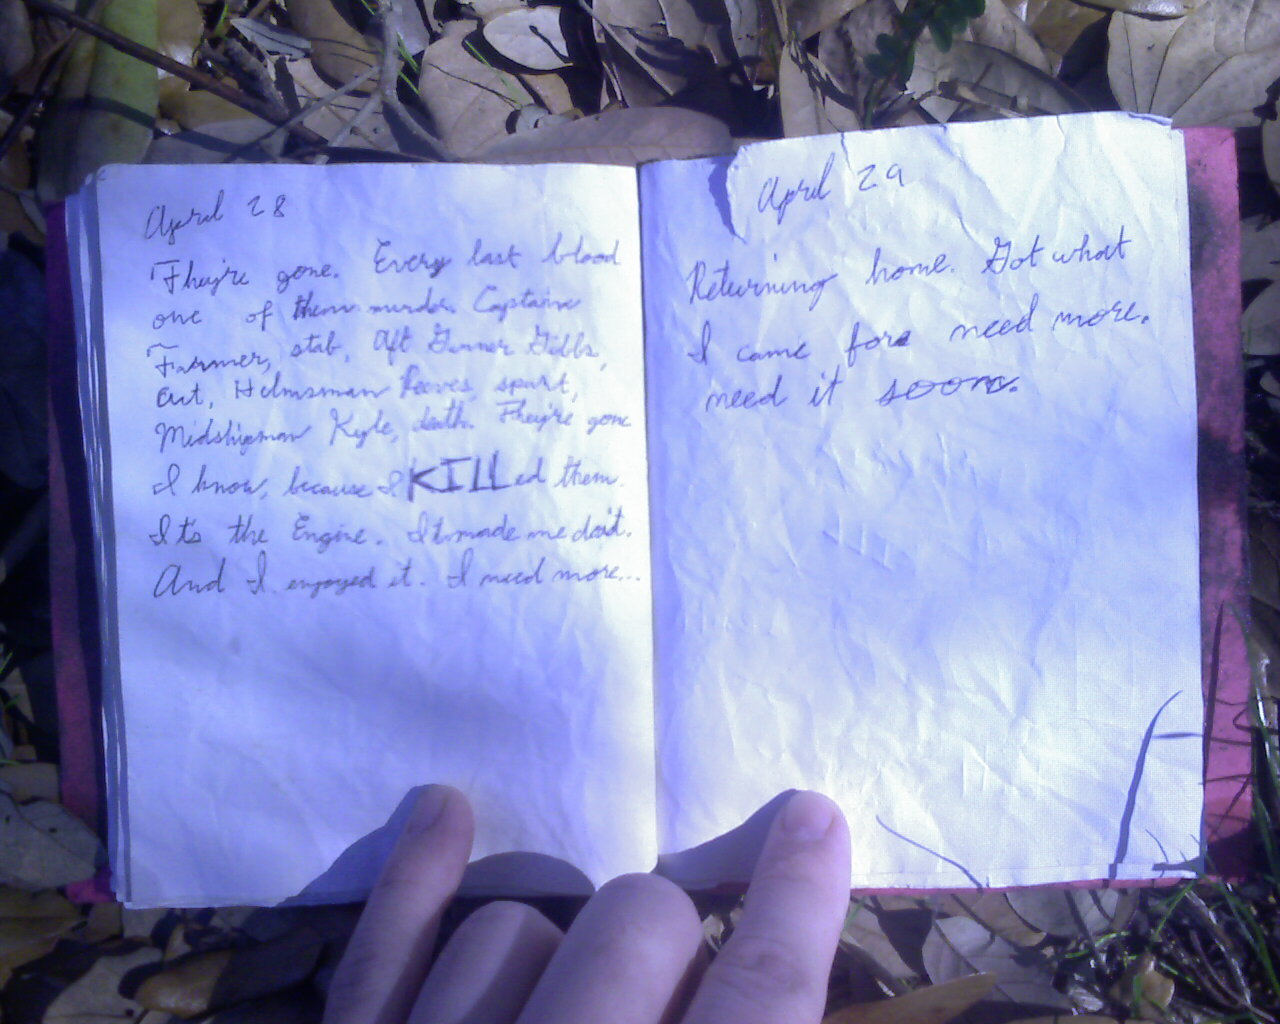 April 28
They're gone. Every last blood
one of them murder. Captain
Farmer, stab, Aft Gunner Gibbs,
cut, Helmsman Reeves, spurt,
Midshipman Kyle, death. They're gone
I know, because I KILLed them.
It's the Engine. It made me do it.
And I enjoyed it. I need more...
April 29
Returning home. Got what
I came for need more.
need it soon.